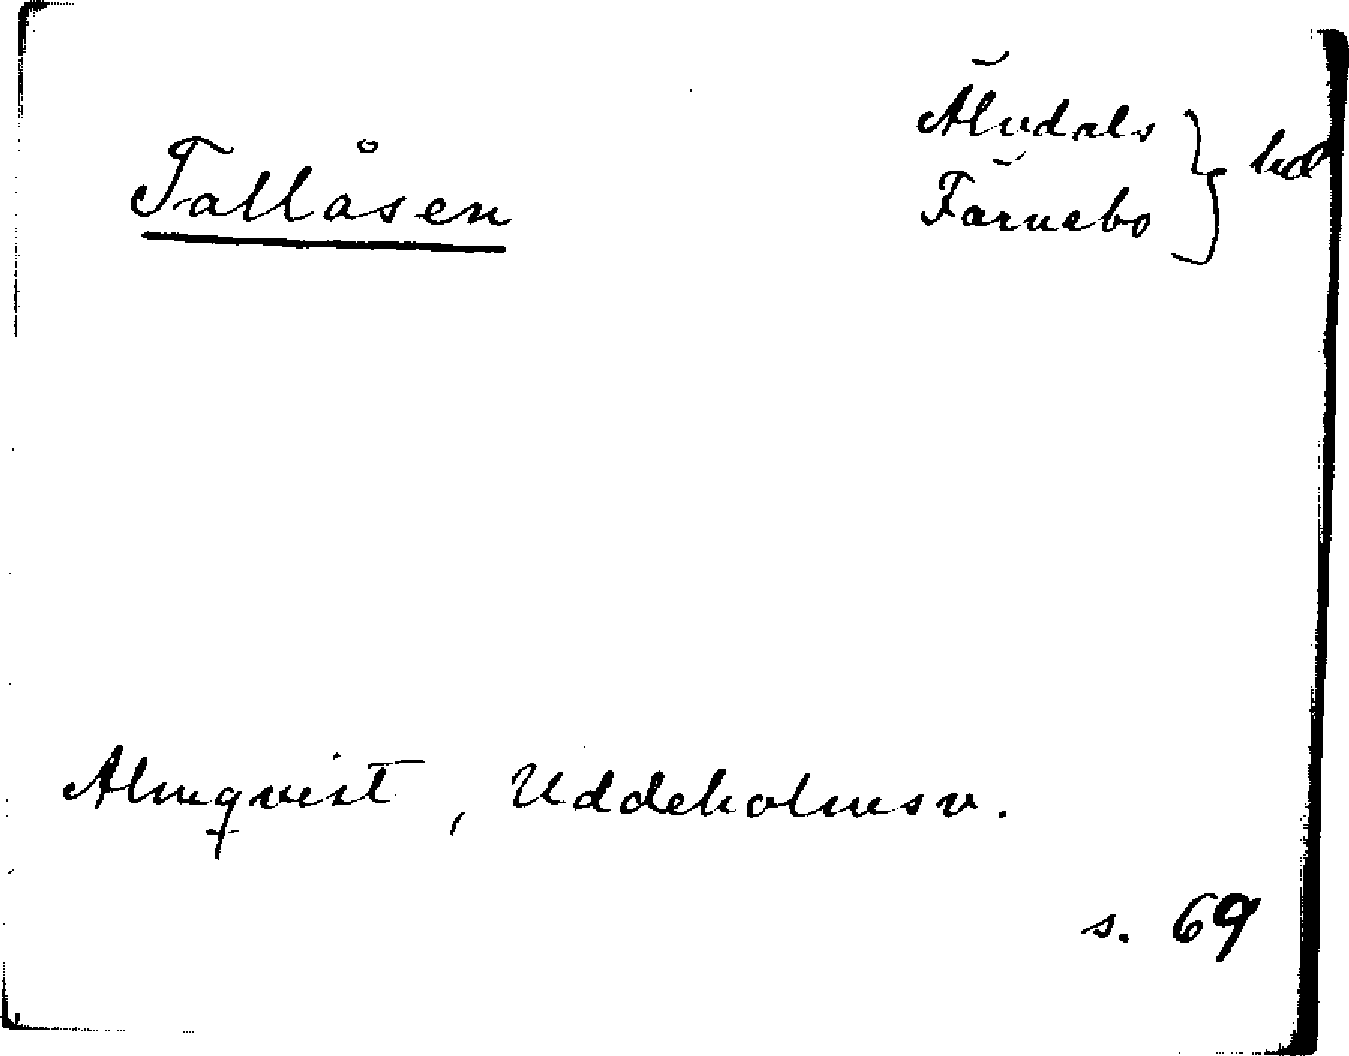 Tallåsen
Älvdals
Färnebo } hd
Almqvist, Uddeholmsv.
s. 69